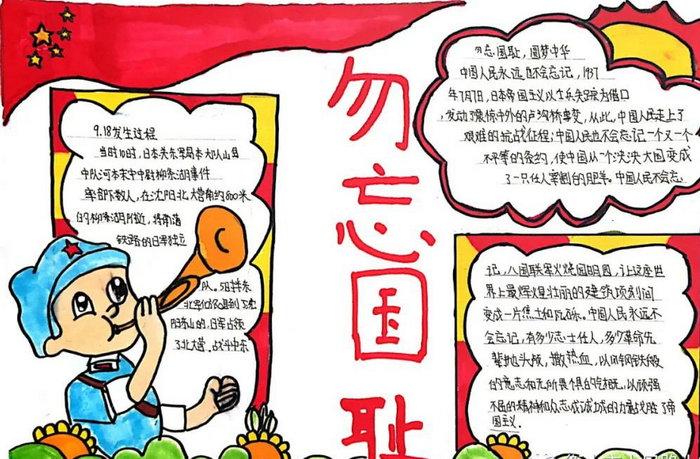 勿忘国耻
9.18发生过程
当时10时,日本关东军岛本大队川岛
中队河本末守中尉柳条湖事件
率部下数人,在沈阳北大营南约800米
的柳条湖附近,将南满
铁路的日军独立
队。5日井东
阳东山的,日军占领
了北大营,战斗中东
勿忘国耻,圆梦中华
中国人民永远也不会忘记,1937
年7月7日,日本帝国主义以士兵失踪为借口
发动了震惊中外的卢沟桥事变,从此,中国人民走上了
艰难的抗战征程;中国人民也不会忘记一个又一个
不平等的条约,使中国从一个泱泱大国变成
了一只任人宰割的肥羊。中国人民不会忘
记,八国联军火烧圆明园,让这座世
界上最辉煌壮丽的建筑顷刻间
变成一片焦土和瓦砾。中国人民永远不
会忘记,有多少志士仁人,多少革命先
辈抛头颅,撒热血,以用钢铁般
的意志和无所畏惧的气概,以顽强
不屈的精神和众志成城的力量战胜了帝
国主义.